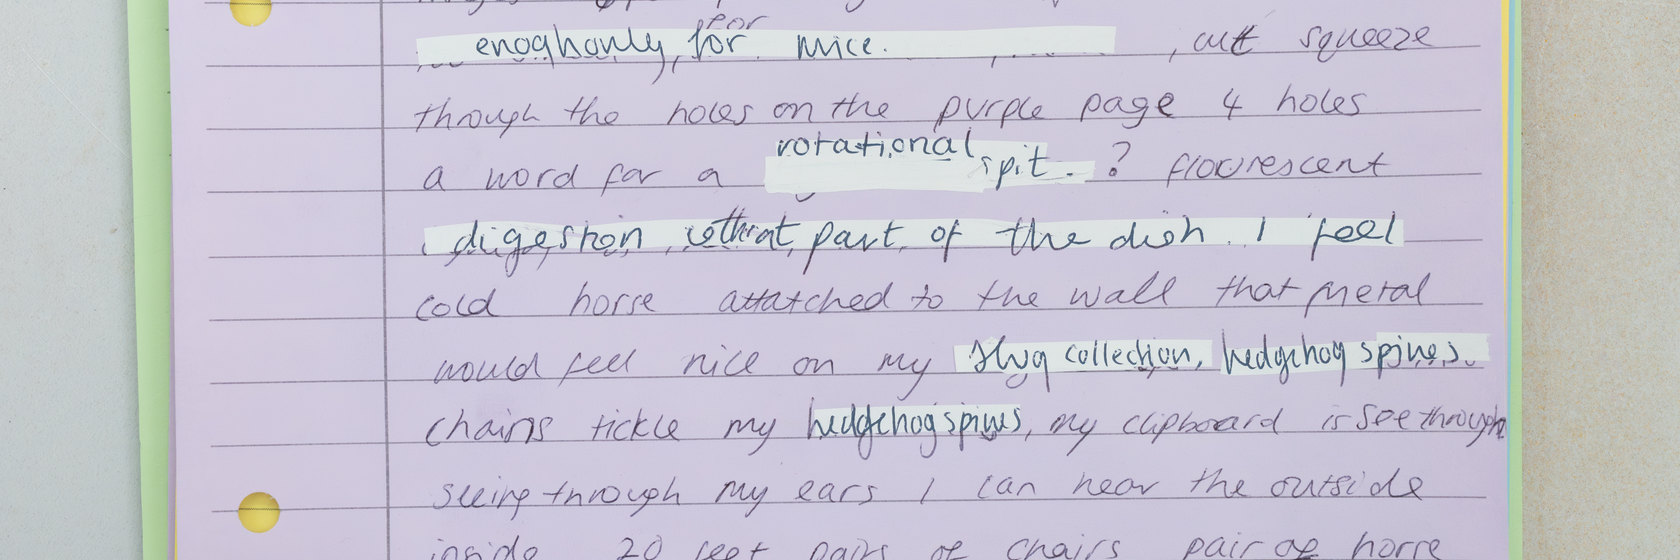 enoghonly, for for mice. , out squeeze
through the holes on the purple page 4 holes
a word for a rotational spit. ? flourescent
digestion, that part of the dish. I feel
cold horse attatched to the wall that metal
would feel nice on my slug collection, hedgehog spines.
chains tickle my hedgehog spines, my clipboard is see through
seeing through my ears I can hear the outside
inside 20 feet pairs of chairs pair of horse